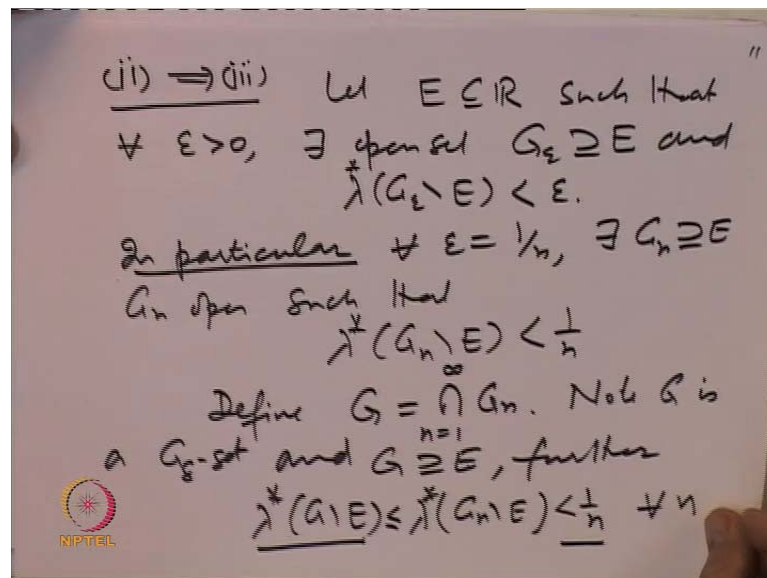 "
(ii) ⟹ (iii) Let E ⊆ ℝ such that
∀ ε>0, ∃ open set G_ε ⊇ E and
λ*(G_ε \ E) < ε.
In particular ∀ ε = 1/n, ∃ G_n ⊇ E
G_n open such that
λ*(G_n \ E) < 1/n
Define G = ∩_{n=1}^{∞} G_n. Note G is
a G_δ-set and G ⊇ E, further
λ*(G \ E) ≤ λ*(G_n \ E) < 1/n ∀ n
NPTEL